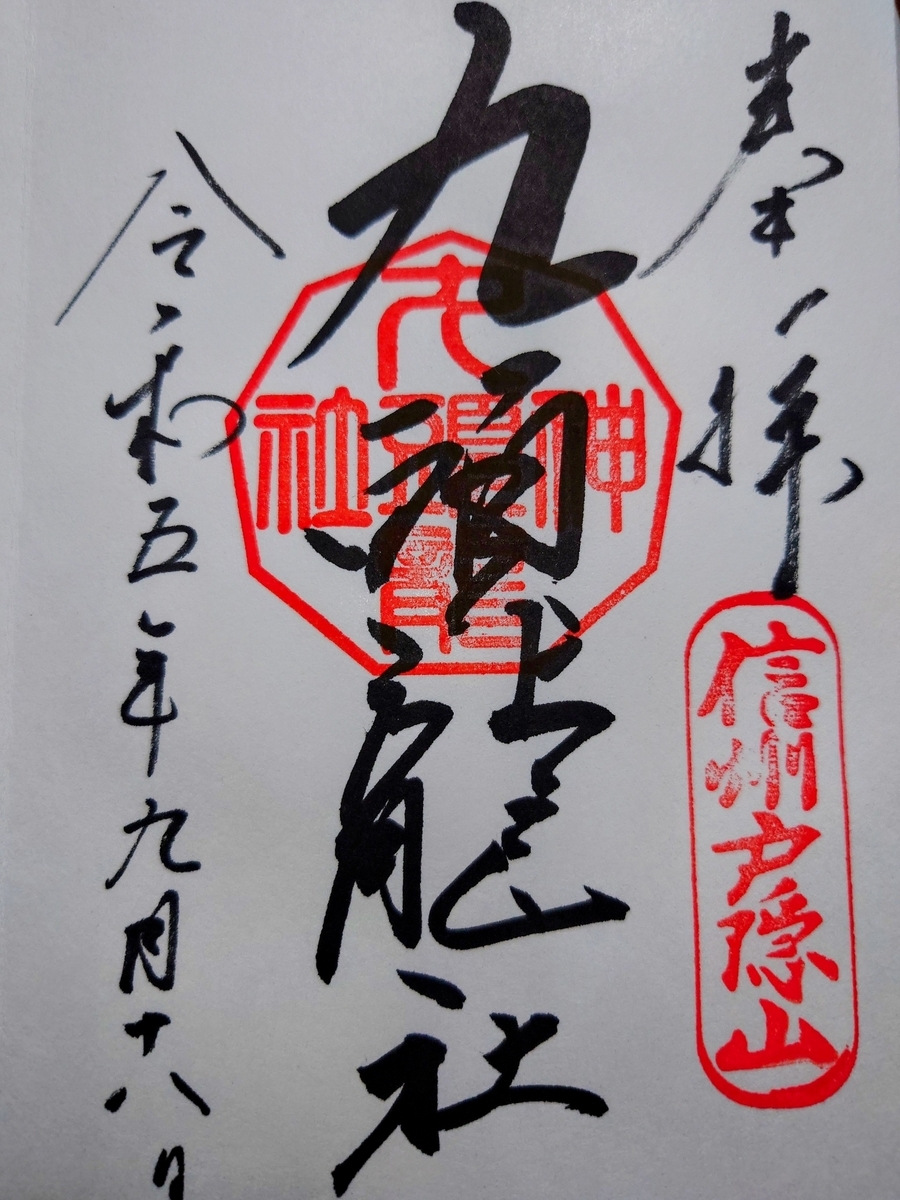 奉拝
信州戸隠山
九頭龍社
戸隠神社
令和五年九月十八日